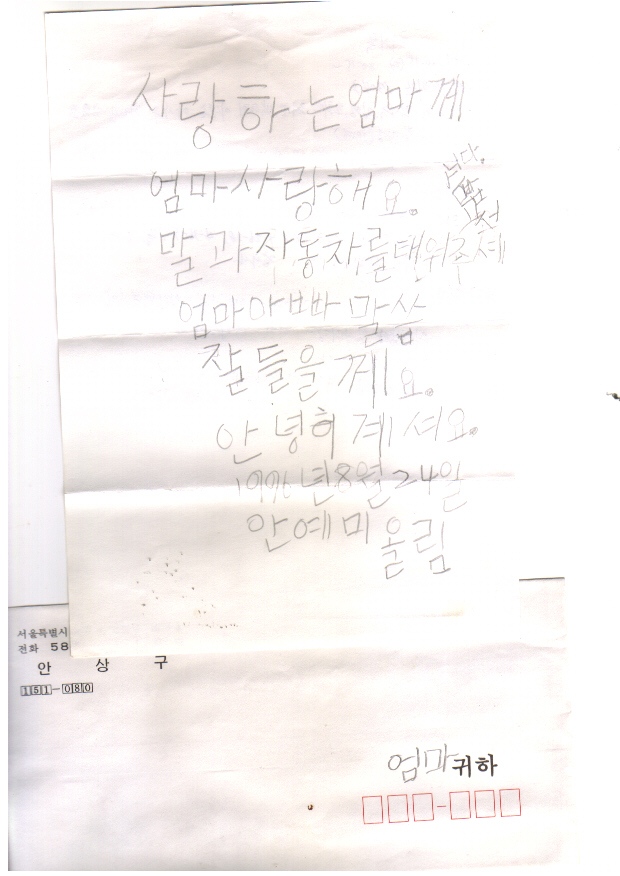 사랑하는엄마께
엄마사랑해요.
니다.
말과자동차를태워주셔
엄마아빠 말씀
잘들을께요.
안녕히계셔요.
1996년8월24일
안예미 올림
서울특별시
전화 58
안 상 구
151-080
엄마귀하